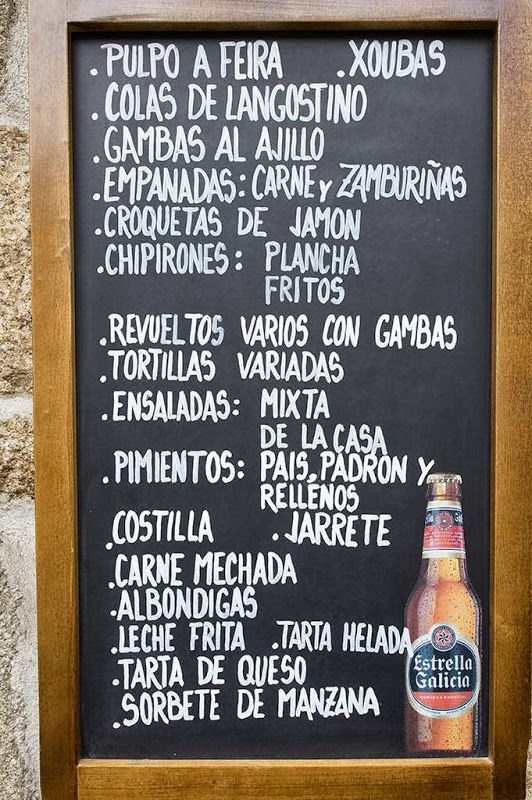 . PULPO A FEIRA . XOUBAS
. COLAS DE LANGOSTINO
. GAMBAS AL AJILLO
. EMPANADAS: CARNE Y ZAMBURIÑAS
. CROQUETAS DE JAMON
. CHIPIRONES: PLANCHA
FRITOS
. REVUELTOS VARIOS CON GAMBAS
. TORTILLAS VARIADAS
. ENSALADAS: MIXTA
DE LA CASA
. PIMIENTOS: PAIS, PADRÓN Y
RELLENOS
. COSTILLA . JARRETE
. CARNE MECHADA
. ALBONDIGAS
. LECHE FRITA . TARTA HELADA
. TARTA DE QUESO
. SORBETE DE MANZANA
Estrella
Galicia
CERVEZA ESPECIAL